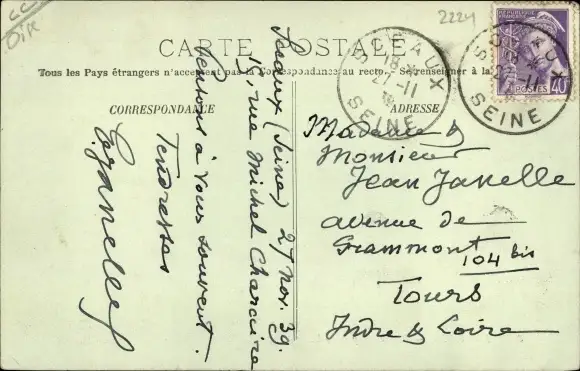 2224
Oik
CARTE POSTALE
Tous les Pays étrangers n'acceptent pas la Correspondance au recto. - Se renseigner à la
CORRESPONDANCE
ADRESSE
SCEAUX
18
27-11
SEINE
RÉPUBLIQUE FRANÇAISE
POSTES
40
SCEAUX
SEINE
Sceaux (Seine) 27 nov. 39.
15, rue Michel Charaire
Pensons à vous souvent.
Tendresses
Madame &
Monsieur
Jean Janelle
avenue de
Grammont 104 bis
Tours
Indre & Loire